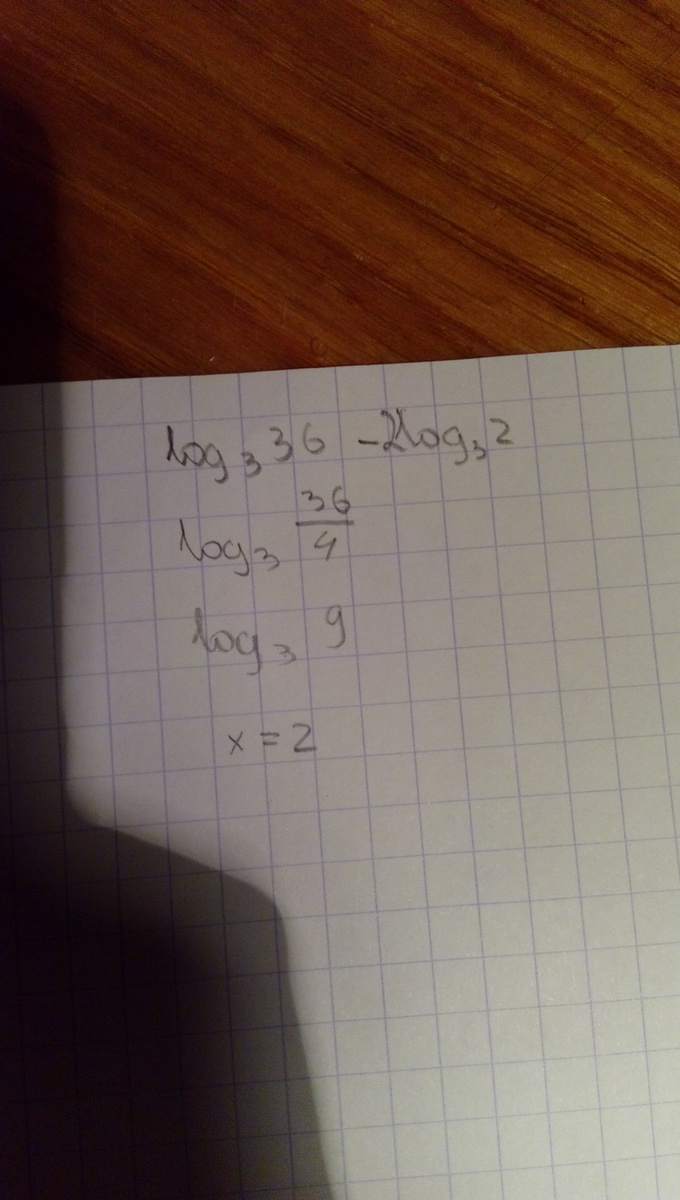 log₃ 36 - 2log₃ 2
log₃ 36/4
log₃ 9
x = 2